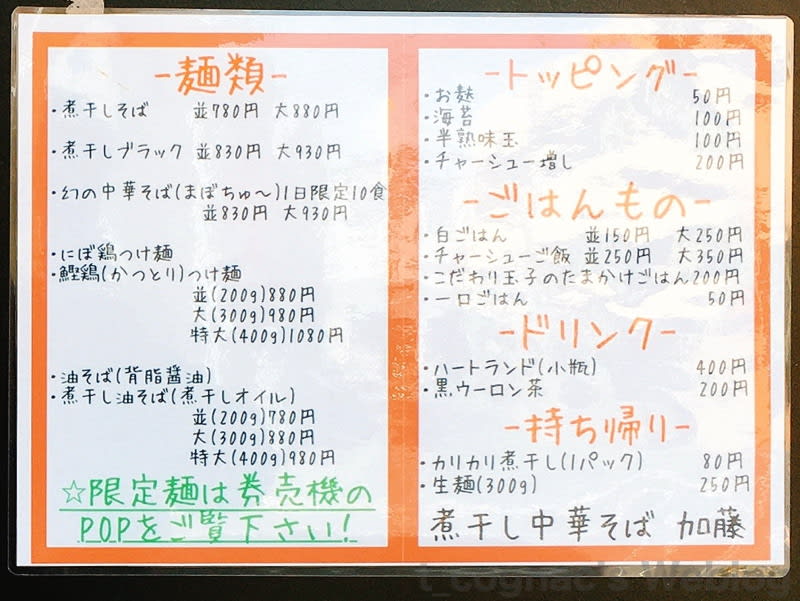 -麺類-
・煮干しそば 並780円 大880円
・煮干しブラック 並830円 大930円
・幻の中華そば(まぼちゅ〜)1日限定10食
並830円 大930円
・にぼ鶏つけ麺
・鰹鶏(かつとり)つけ麺
並(200g)880円
大(300g)980円
特大(400g)1080円
・油そば(背脂醤油)
・煮干し油そば(煮干しオイル)
並(200g)780円
大(300g)880円
特大(400g)980円
☆限定麺は券売機の
POPをご覧下さい!
-トッピング-
・お麩 50円
・海苔 100円
・半熟味玉 100円
・チャーシュー増し 200円
-ごはんもの-
・白ごはん 並150円 大250円
・チャーシューご飯 並250円 大350円
・こだわり玉子のたまかけごはん200円
・一口ごはん 50円
-ドリンク-
・ハートランド(小瓶) 400円
・黒ウーロン茶 200円
-持ち帰り-
・カリカリ煮干し(1パック) 80円
・生麺(300g) 250円
煮干し中華そば 加藤
t_cognac's Weblog